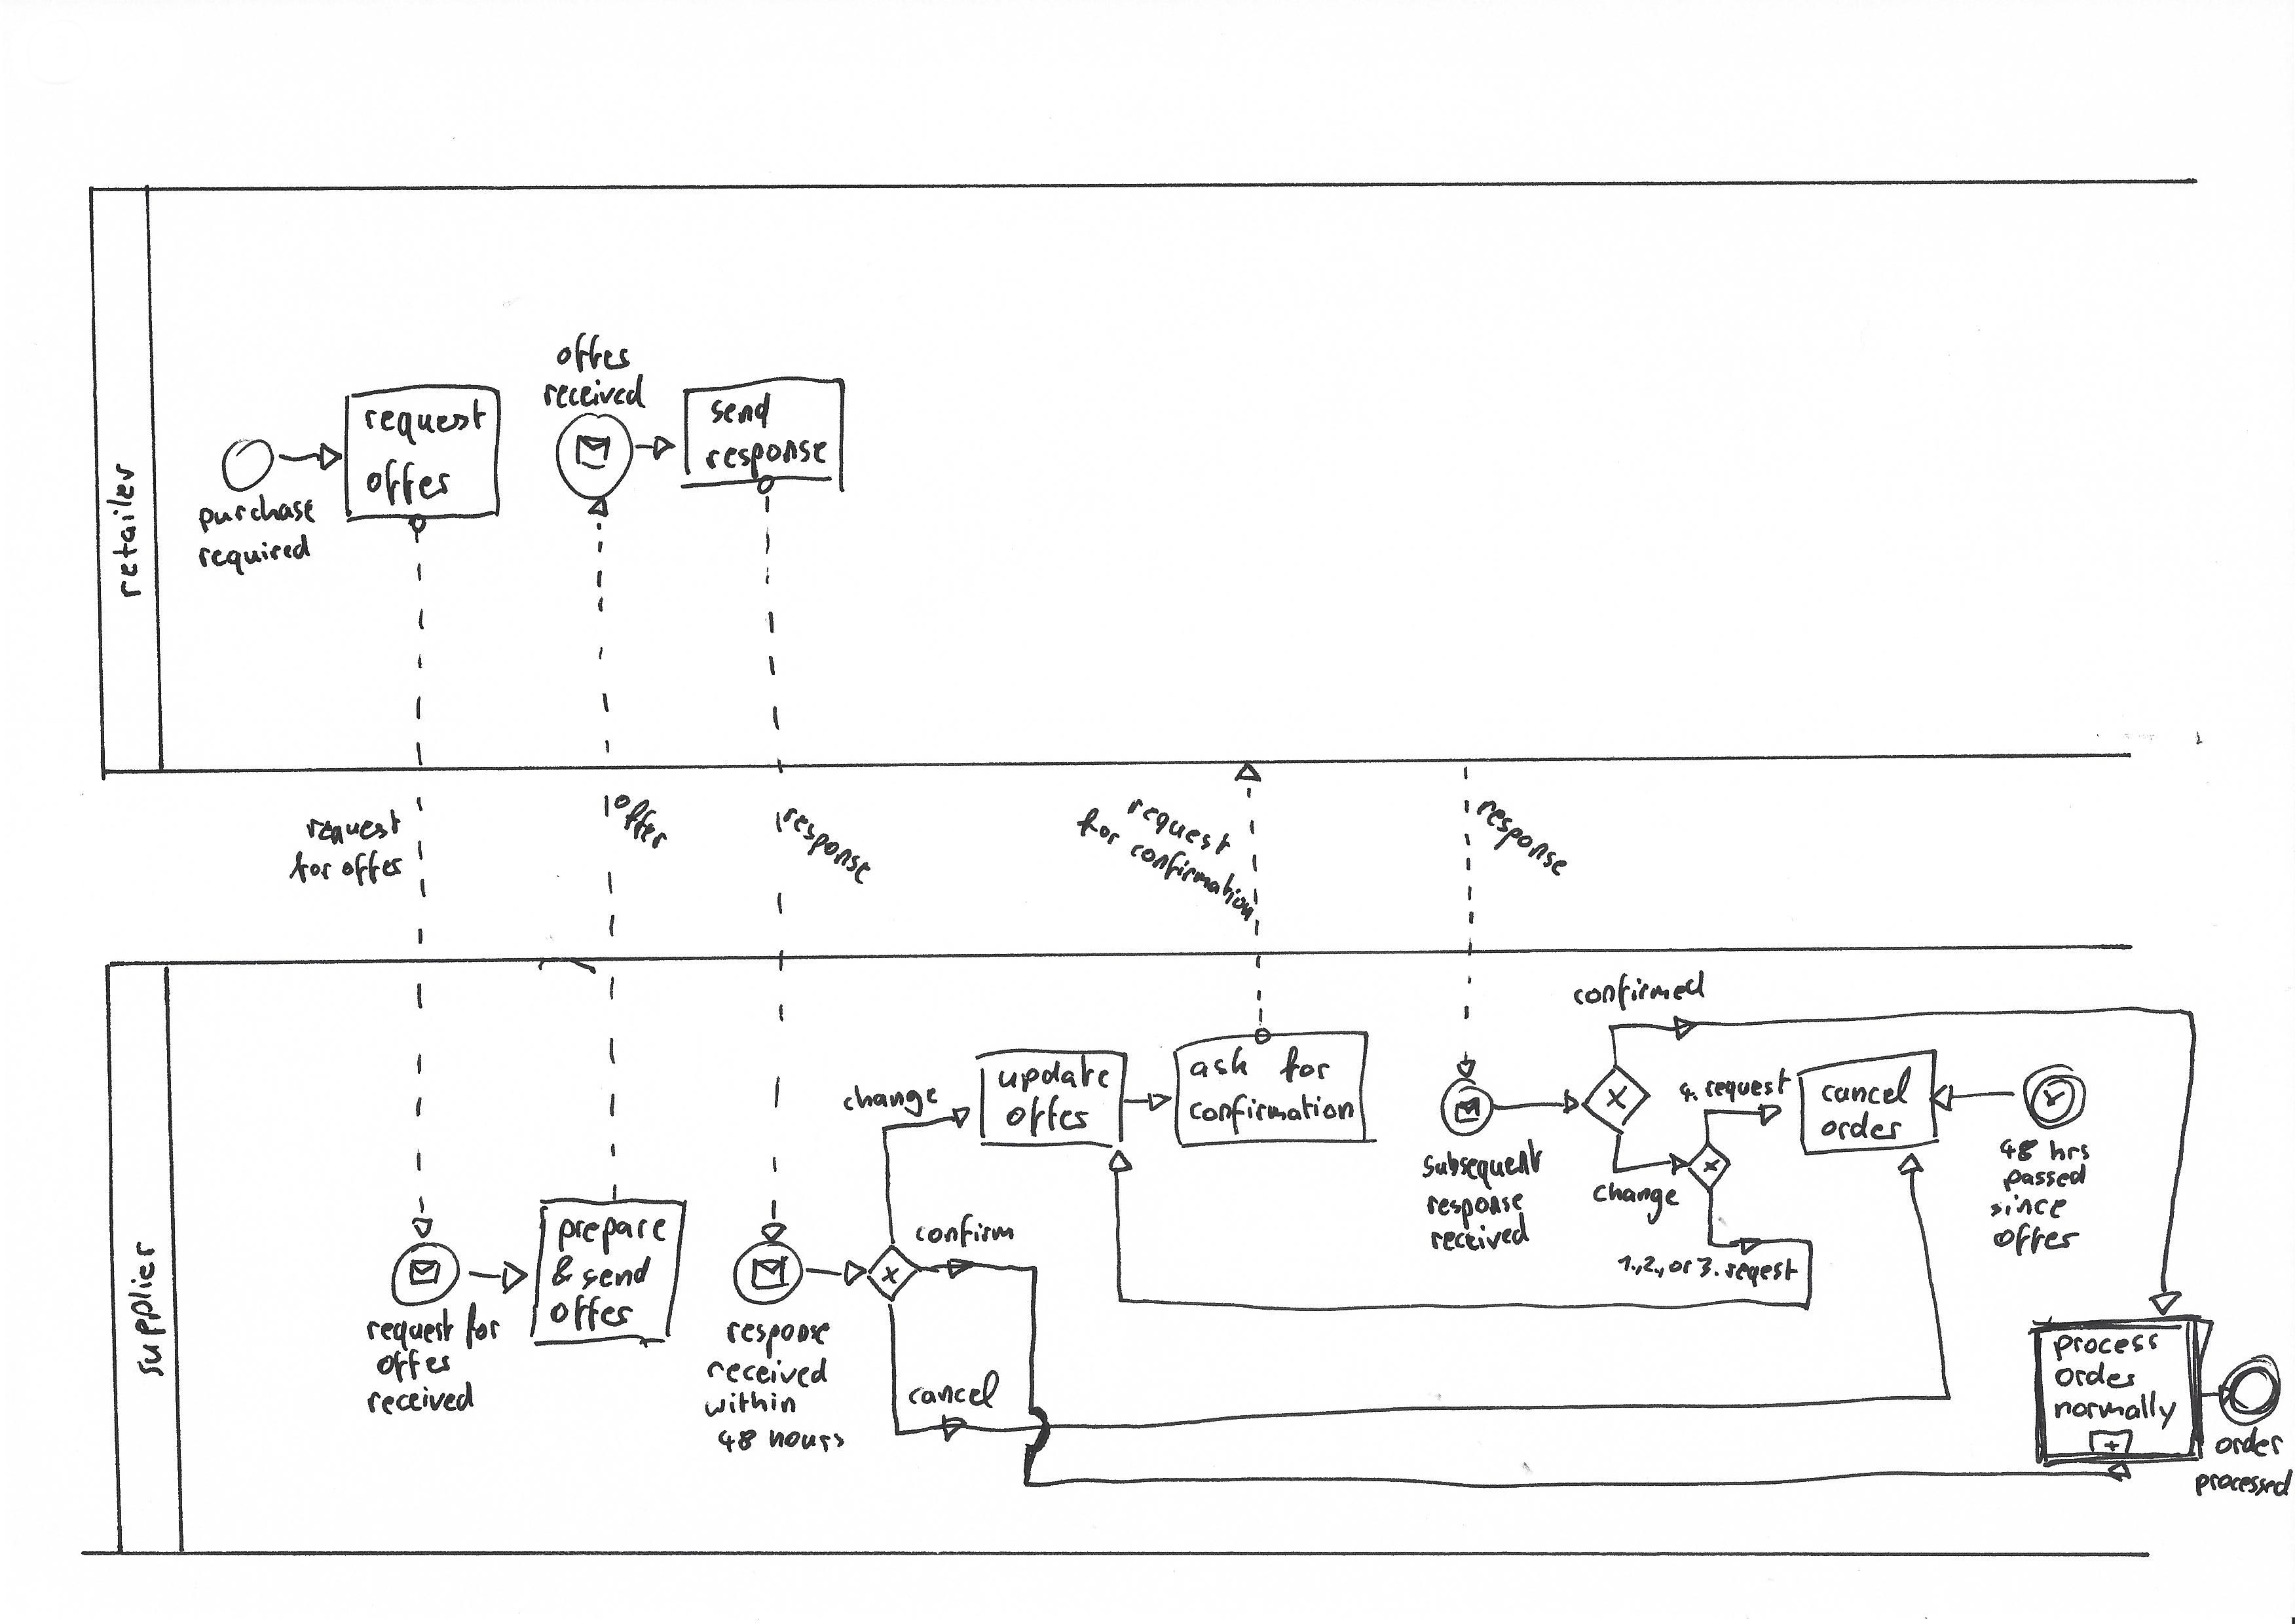 retailer
purchase
required
request
offer
offer
received
send
response
request
for offer
offer
response
request
for confirmation
response
supplier
request for
offer
received
prepare
& send
offer
response
received
within
48 hours
change
confirm
cancel
update
offer
ask for
confirmation
subsequent
response
received
confirmed
change
4. request
1., 2., or 3. reqest
cancel
order
48 hrs
passed
since
offer
process
order
normally
order
processed